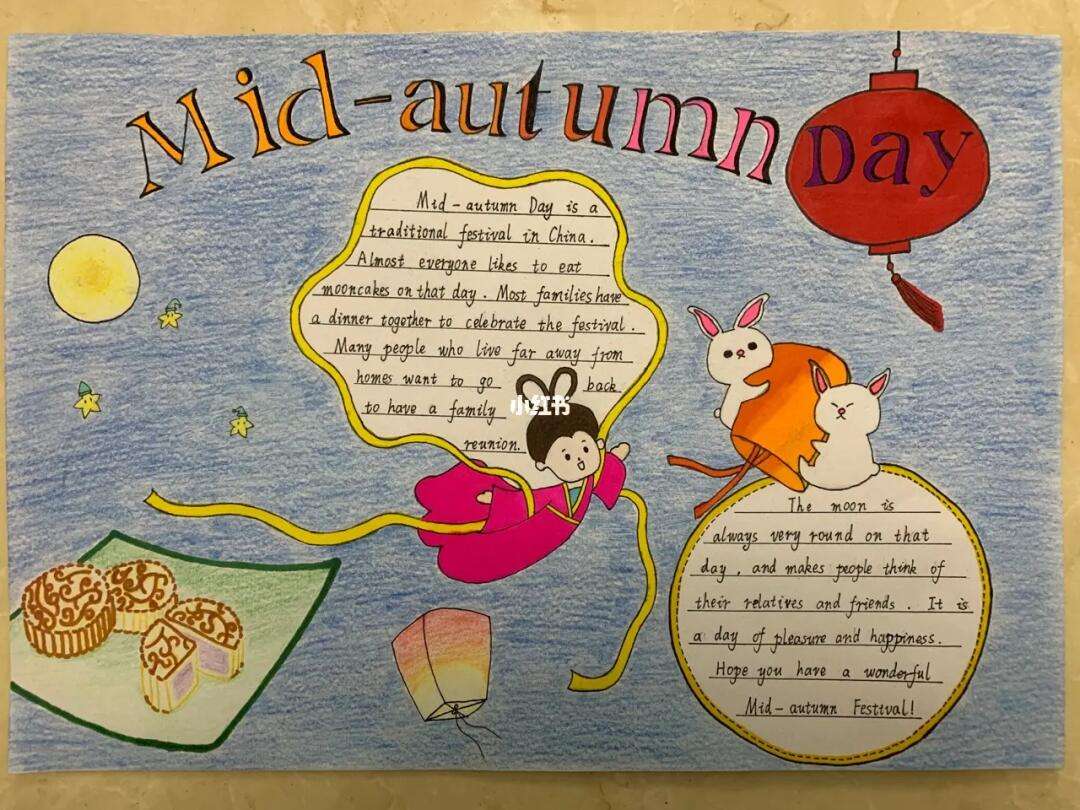 Mid-autumn Day
Mid-autumn Day is a
traditional festival in China.
Almost everyone likes to eat
mooncakes on that day. Most families have
a dinner together to celebrate the festival.
Many people who live far away from
homes want to go back
to have a family
reunion.
小红书
The moon is
always very round on that
day, and makes people think of
their relatives and friends. It is
a day of pleasure and happiness.
Hope you have a wonderful
Mid-autumn Festival!